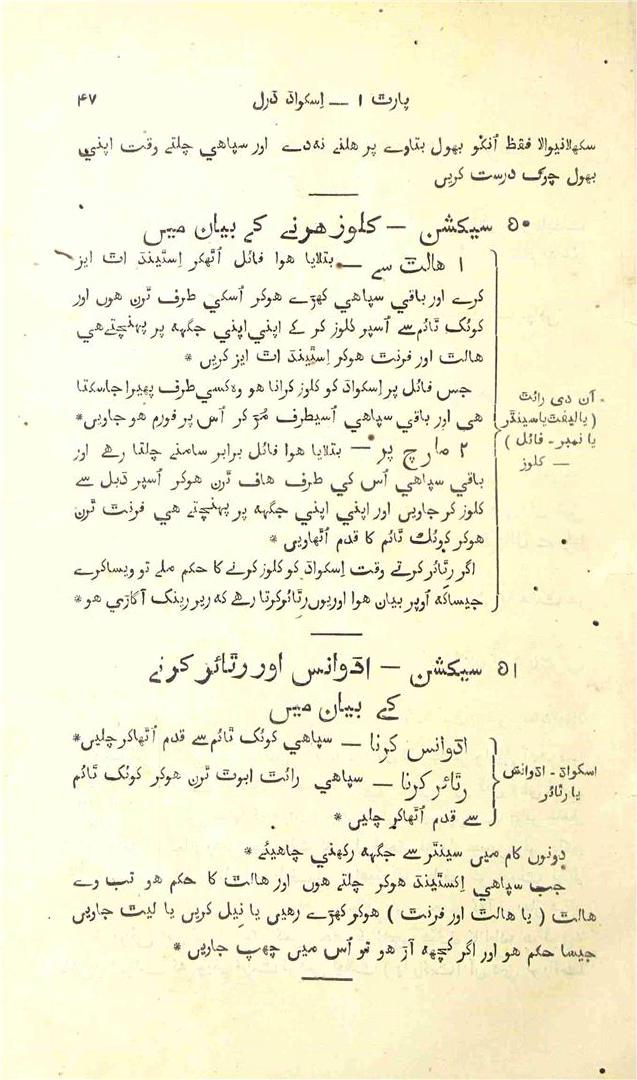 پارٹ ۱ — اِسکواڈ ڈرل ۴۷
سکھلانیوالا فقط اُنکو بھول بتاوے پر ھلنے نہ دے اور سپاھي چلتے وقت اپني
بھول چوک درست کریں
۵۰ سیکشن — کلوز ھونے کے بیان میں
۱ ھالٹ سے — بتلایا ھوا فائل اُٹھکر اِسٹینڈ اٹ ایز
کرے اور باقي سپاھي کھڑے ھوکر اُسکي طرف ٹرن ھوں اور
کوئک ٹائم سے اُسپر کلوز کر کے اپني اپني جگہہ پر پہنچتے ھي
ھالٹ اور فرنٹ ھوکر اِسٹینڈ اٹ ایز کریں *
جس فائل پر اِسکواڈ کو کلوز کرانا ھو وہ کسي طرف پھیرا جاسکتا
ھي اور باقي سپاھي اُسیطرف مُڑ کر اُس پر فورم ھو جاویں *
آن دی رائٹ
( یا لیفٹ یا سینٹر
یا نمبر - فائل )
— کلوز
۲ مارچ پر — بتلایا ھوا فائل برابر سامنے چلتا رھے اور
باقي سپاھي اُس کي طرف ھاف ٹرن ھوکر اُسپر ڈبل سے
کلوز کر جاویں اور اپني اپني جگہہ پر پہنچتے ھي فرنٹ ٹرن
ھوکر کوئک ٹائم کا قدم اُٹھاویں *
اگر رٹائر کرتے وقت اِسکواڈ کو کلوز کرنے کا حکم ملے تو ویسا کرے
جیساکہ اُوپر بیان ھوا اور یوں رٹائر کرتا رھے کہ ریر رینک اگاڑي ھو *
۵۱ سیکشن — اڈوانس اور رٹائر کرنے
کے بیان میں
اسکواڈ - اڈوانس
یا رٹائر
اڈوانس کرنا — سپاھي کوئک ٹائم سے قدم اُٹھاکر چلیں *
رٹائر کرنا — سپاھي رائٹ ابوٹ ٹرن ھوکر کوئک ٹائم
سے قدم اُٹھاکر چلیں *
دونوں کام میں سینٹر سے جگہہ رکھني چاھیئے *
جب سپاھي اِکسٹینڈ ھوکر چلتے ھوں اور ھالٹ کا حکم ھو تب وے
ھالٹ ( یا ھالٹ اور فرنٹ ) ھوکر کھڑے رھیں یا نِیل کریں یا لیٹ جاویں
جیسا حکم ھو اور اگر کچھہ آڑ ھو تو اُس میں چھپ جاویں *